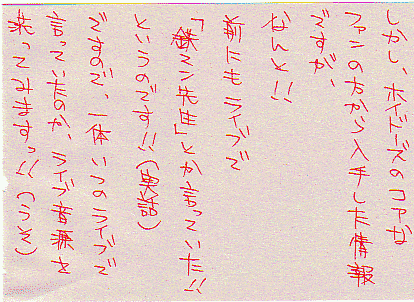 しかし、ホイドーズのコアな
ファンの方から入手した情報
ですが、
なんと!!
前にもライブで
「鉄ミン先生」とか言っていた!!
というのです!!(実話)
ですので、一体いつのライブで
言っていたのか、ライブ音源を
洗ってみますっ!!(うそ)